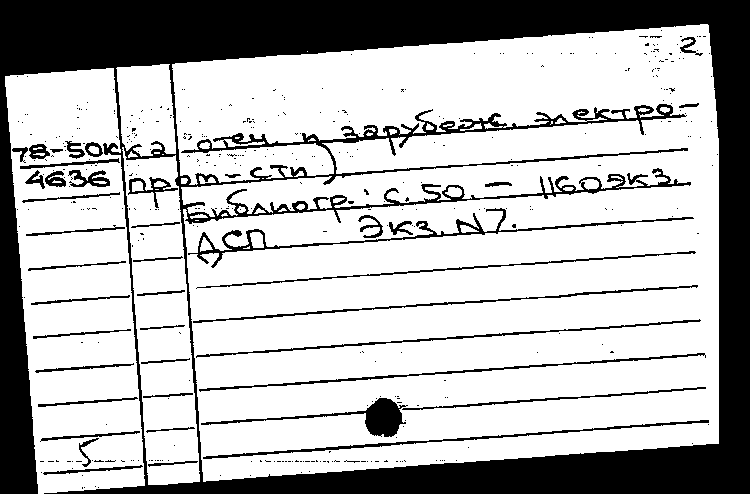 2
78-50к ка отеч. и зарубеж. электро-
4636 пром-сти).
Библиогр.: с. 50. — 1160 экз.
ДСП. Экз. N7.
5